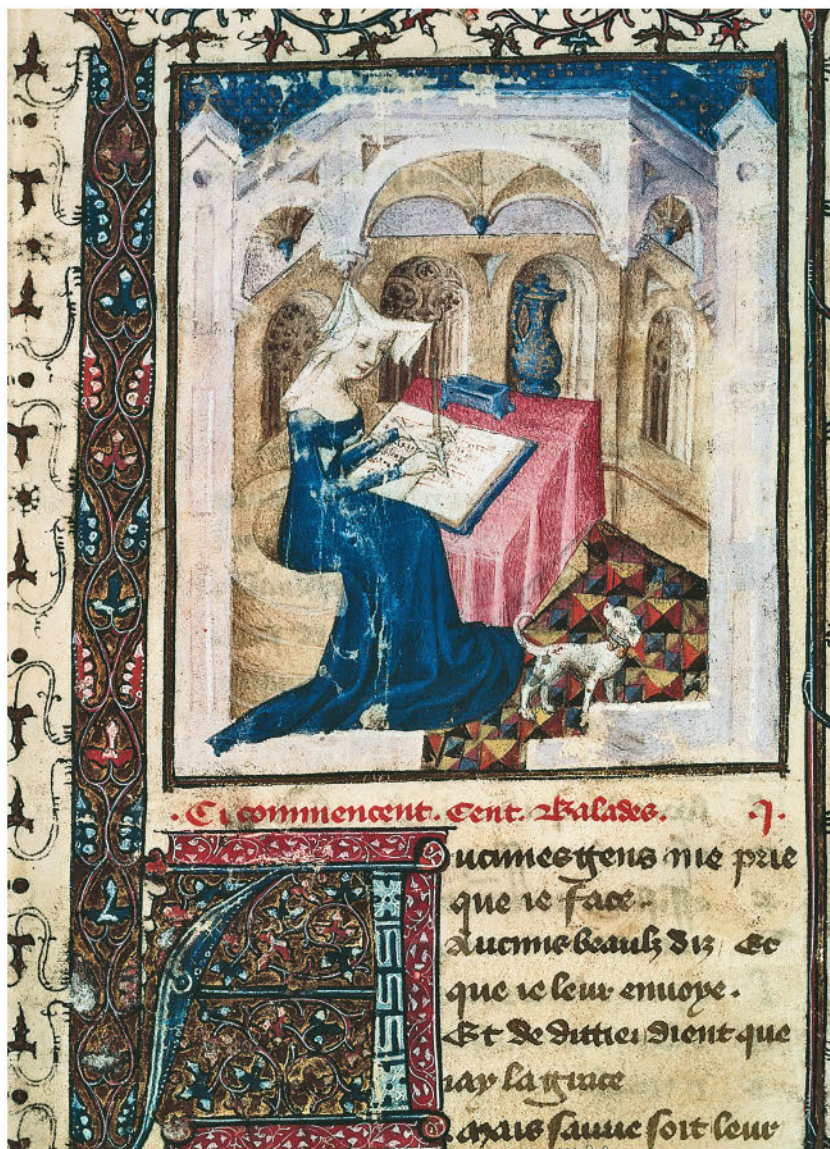 . Ci commencent . Cent . Balades . .j.
Aucunes gens me prie
que ie face .
Aucuns beaulz diz Et
que ie leur enuoye .
Et de dittier dient que
iay la grace
Mais sauue soit leur